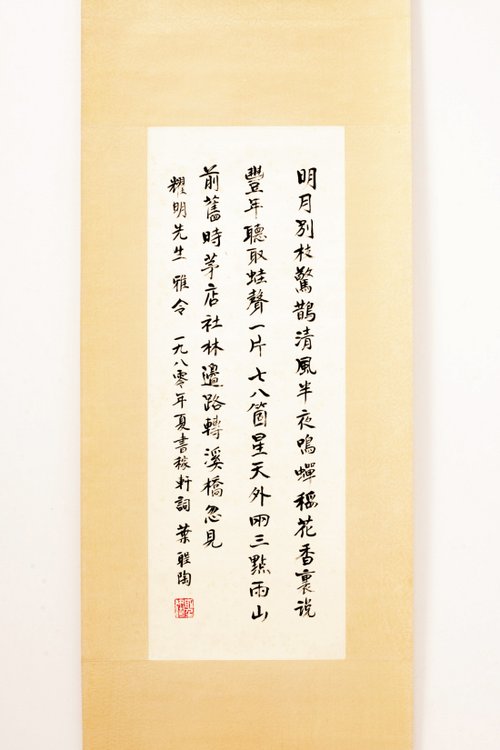 明月別枝驚鵲清風半夜鳴蟬稻花香裏说
豐年聽取蛙聲一片七八箇星天外兩三點雨山
前舊時茅店社林邊路轉溪橋忽見
耀明先生 雅令 一九八零年夏書稼軒詞 葉聖陶